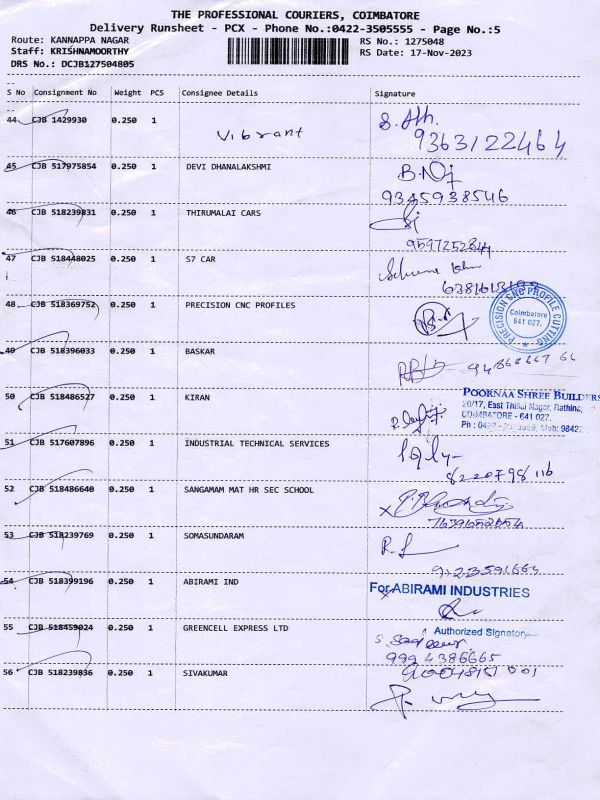 THE PROFESSIONAL COURIERS, COIMBATORE
Delivery Runsheet - PCX - Phone No.:0422-3505555 - Page No.:5
Route: KANNAPPA NAGAR RS No.: 1275048
Staff: KRISHNAMOORTHY RS Date: 17-Nov-2023
DRS No.: DCJB127504805
S No Consignment No Weight PCS Consignee Details Signature
44 CJB 1429930 0.250 1 Vibrant
9363122464
45 CJB 517975854 0.250 1 DEVI DHANALAKSHMI
9345938546
46 CJB 518239831 0.250 1 THIRUMALAI CARS
47 CJB 518448025 0.250 1 S7 CAR
48 CJB 518369752 0.250 1 PRECISION CNC PROFILES
PRECISION CNC PROFILE CUTTING
Coimbatore
641 027.
49 CJB 518396033 0.250 1 BASKAR
50 CJB 518486527 0.250 1 KIRAN
POORNAA SHREE BUILDERS
20/17, East Thillai Nagar, Rathina,
COIMBATORE - 641 027.
Ph : 0422 - Mob: 9842
51 CJB 517607896 0.250 1 INDUSTRIAL TECHNICAL SERVICES
52 CJB 518486640 0.250 1 SANGAMAM MAT HR SEC SCHOOL
53 CJB 518239769 0.250 1 SOMASUNDARAM
54 CJB 518399196 0.250 1 ABIRAMI IND
For ABIRAMI INDUSTRIES
Authorized Signatory
55 CJB 518459024 0.250 1 GREENCELL EXPRESS LTD
9994386665
56 CJB 518239836 0.250 1 SIVAKUMAR